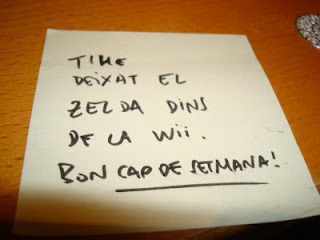 T'HE
DEIXAT EL
ZELDA DINS
DE LA Wii.
BON CAP DE SETMANA!